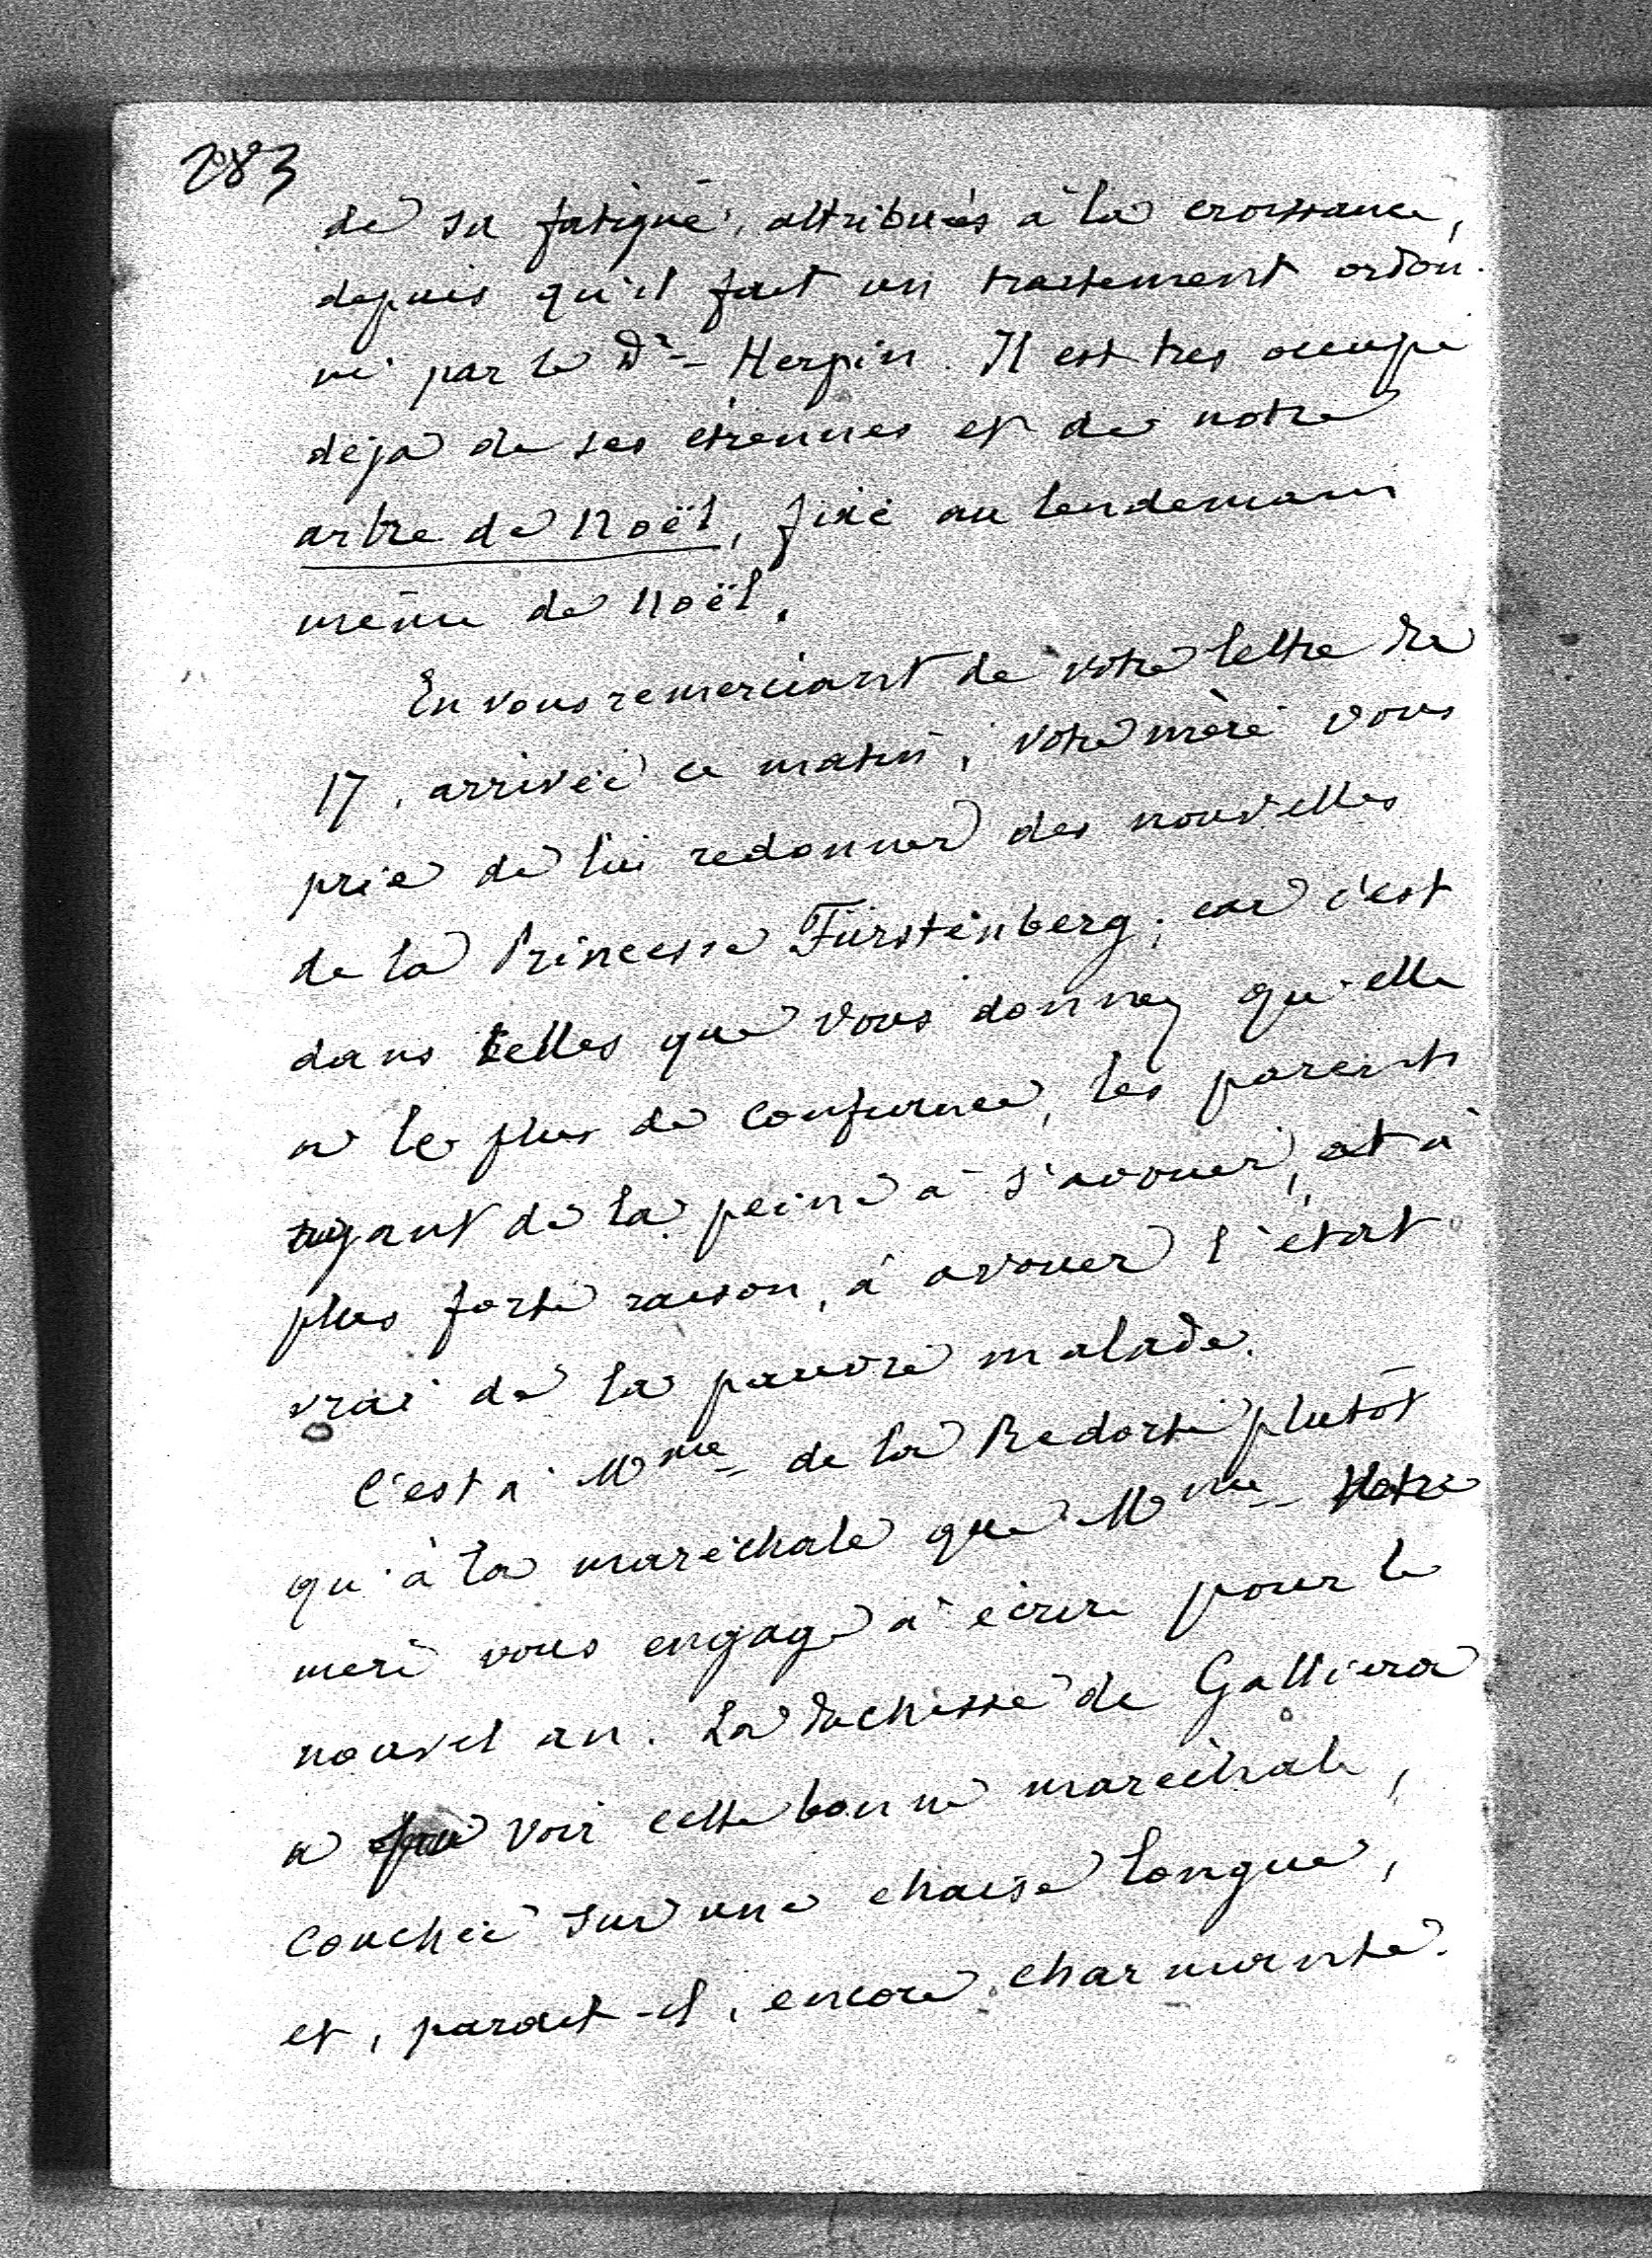 283
de sa fatigue, attribuées à la croissance,
depuis qu'il fait un traitement ordon-
né par le Dr Herpin. Il est très occupé
déjà de ses étrennes et de notre
arbre de Noël, fixé au lendemain
même de Noël.
En vous remerciant de votre lettre du
17, arrivée ce matin, votre mère vous
prie de lui redonner des nouvelles
de la Princesse Fürstenberg; car c'est
dans celles que vous donnez qu'elle
a le plus de confiance, les parents
ayant de la peine à s'avouer, et à
plus forte raison, à avouer l'état
vrai de la pauvre malade.
C'est à Mme de la Redorte plutôt
qu'à la maréchale que Mme Votre
mère vous engage à écrire pour le
nouvel an. La Duchesse de Galliera
a pu voir cette bonne maréchale,
couchée sur une chaise longue,
et, paraît-il, encore charmante.